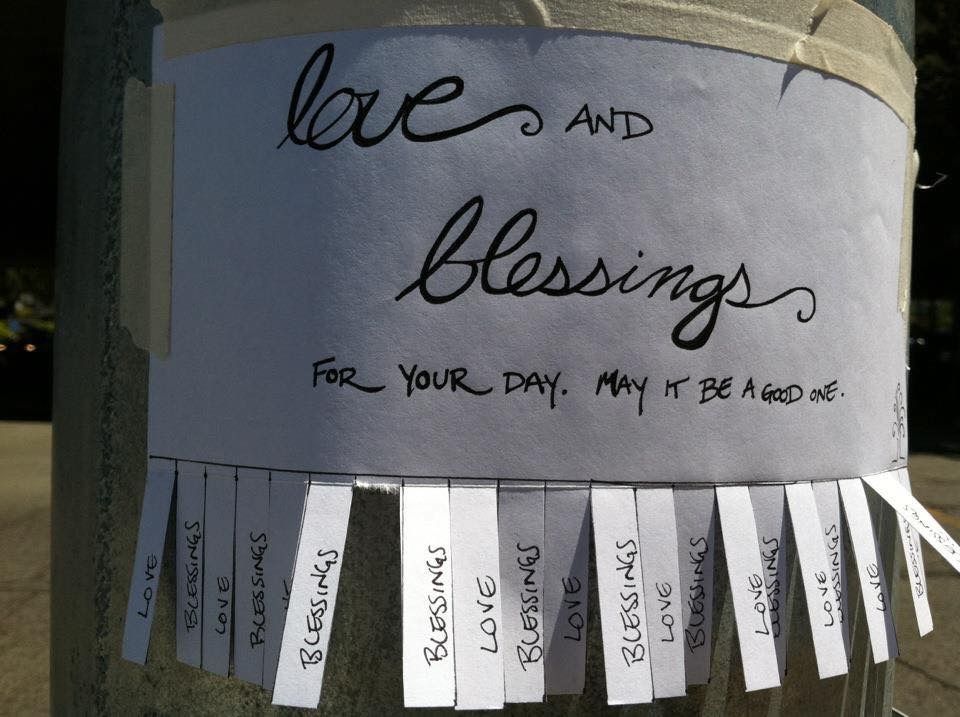 love AND
blessings
FOR YOUR DAY. MAY IT BE A GOOD ONE.
LOVE
BLESSINGS
LOVE
BLESSINGS
BLESSINGS
BLESSINGS
LOVE
BLESSINGS
LOVE
BLESSINGS
LOVE
BLESSINGS
LOVE
BLESSINGS
LOVE
BLESSINGS
LOVE
BLESSINGS